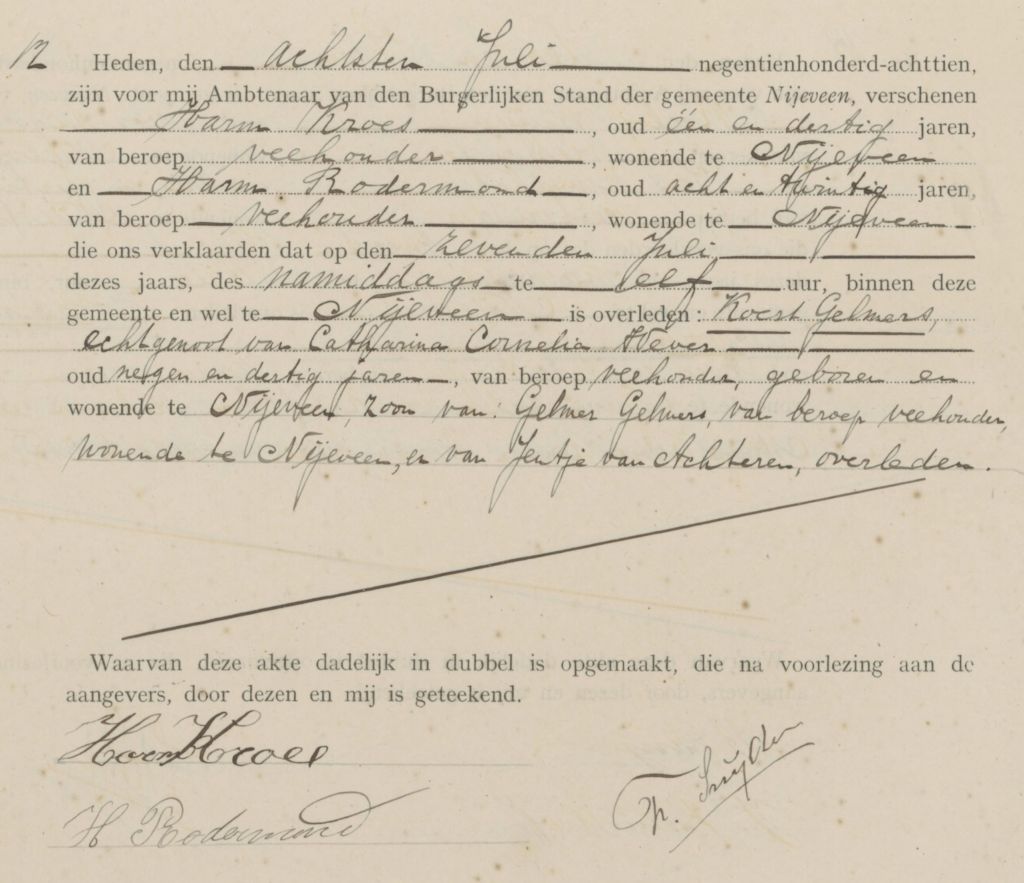 12 Heden, den achtsten Juli negentienhonderd-achttien,
zijn voor mij Ambtenaar van den Burgerlijken Stand der gemeente Nijeveen, verschenen
Harm Kroes, oud één en dertig jaren,
van beroep veehouder, wonende te Nijeveen
en Harm Rodermond, oud acht en twintig jaren,
van beroep veehouder, wonende te Nijeveen
die ons verklaarden dat op den zevenden Juli
dezes jaars, des namiddags te elf uur, binnen deze
gemeente en wel te Nijeveen is overleden: Koert Gelmers,
echtgenoot van Catharina Cornelia Wever
oud negen en dertig jaren, van beroep veehouder, geboren en
wonende te Nijeveen, zoon van: Gelmer Gelmers, van beroep veehouder,
wonende te Nijeveen, en van Jentje van Achteren, overleden.
Waarvan deze akte dadelijk in dubbel is opgemaakt, die na voorlezing aan de
aangevers, door dezen en mij is geteekend.
Harm Kroes
H Rodermond